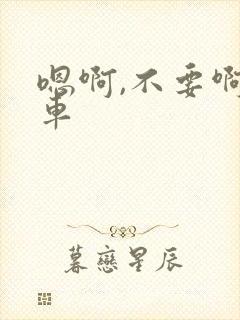 嗯啊,不要啊
车
暮恋星辰